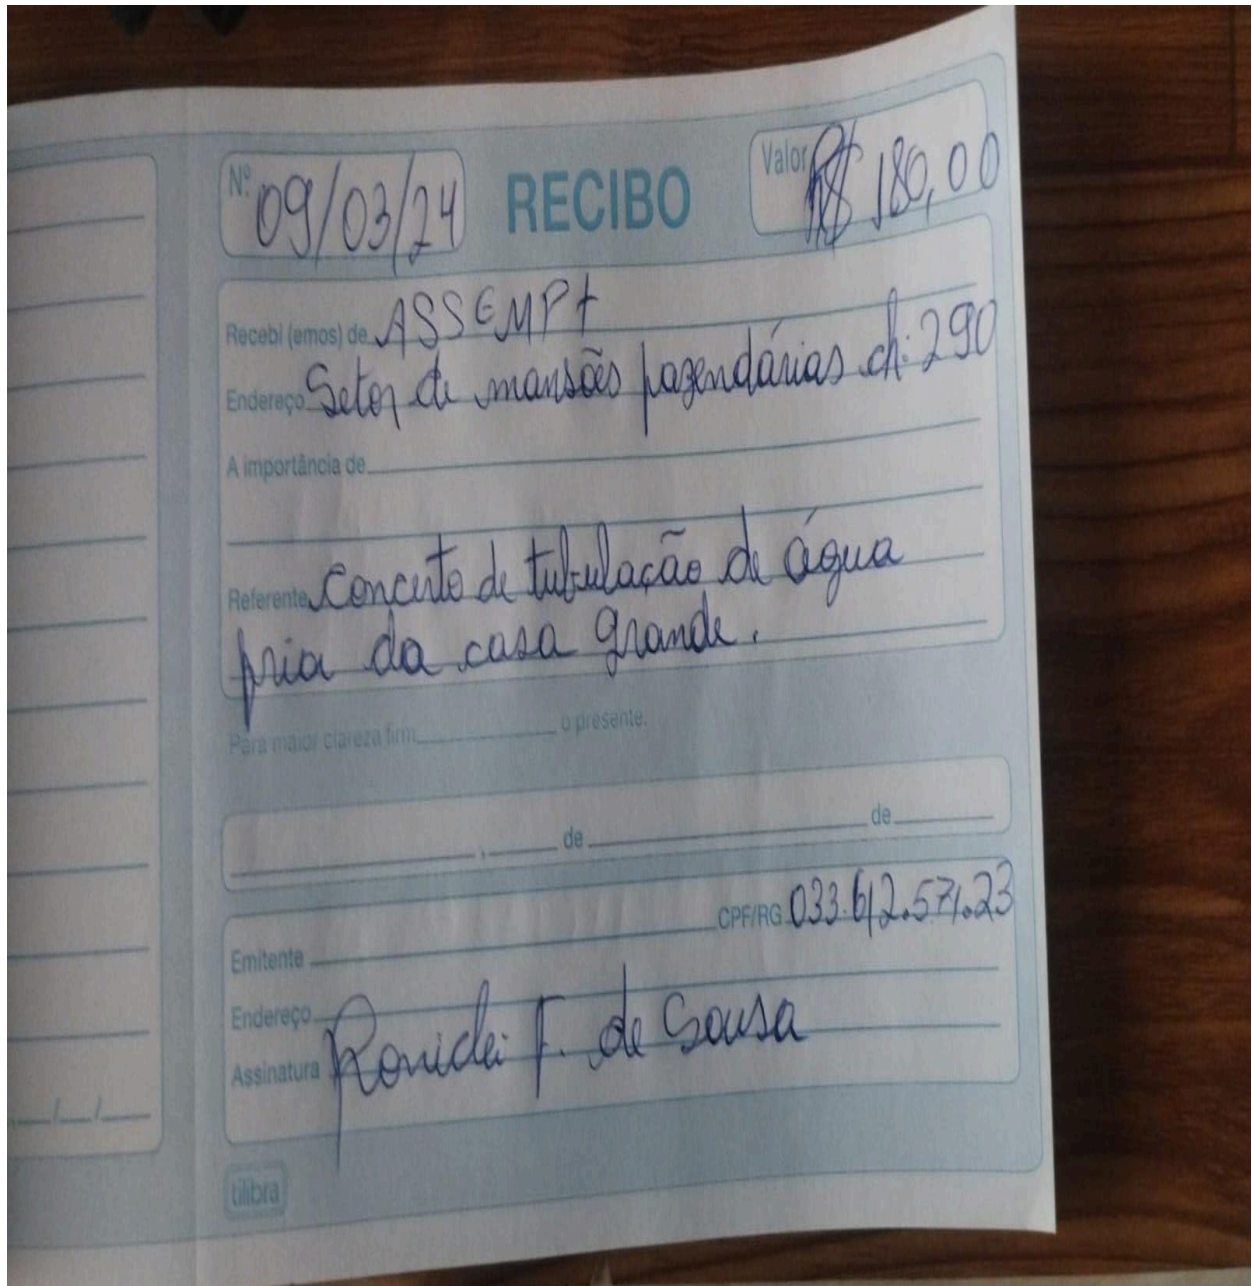 Nº 09/03/24 RECIBO Valor R$ 180,00
Recebi (emos) de ASSEMPT
Endereço Setor de mansões fazendárias ch: 290
A importância de
Referente Concerto de tubulação de água
fria da casa grande.
Para maior clareza firm o presente.
, de de
CPF/RG 033.612.571.23
Emitente
Endereço
Assinatura Ronidei F. de Sousa
tilibra